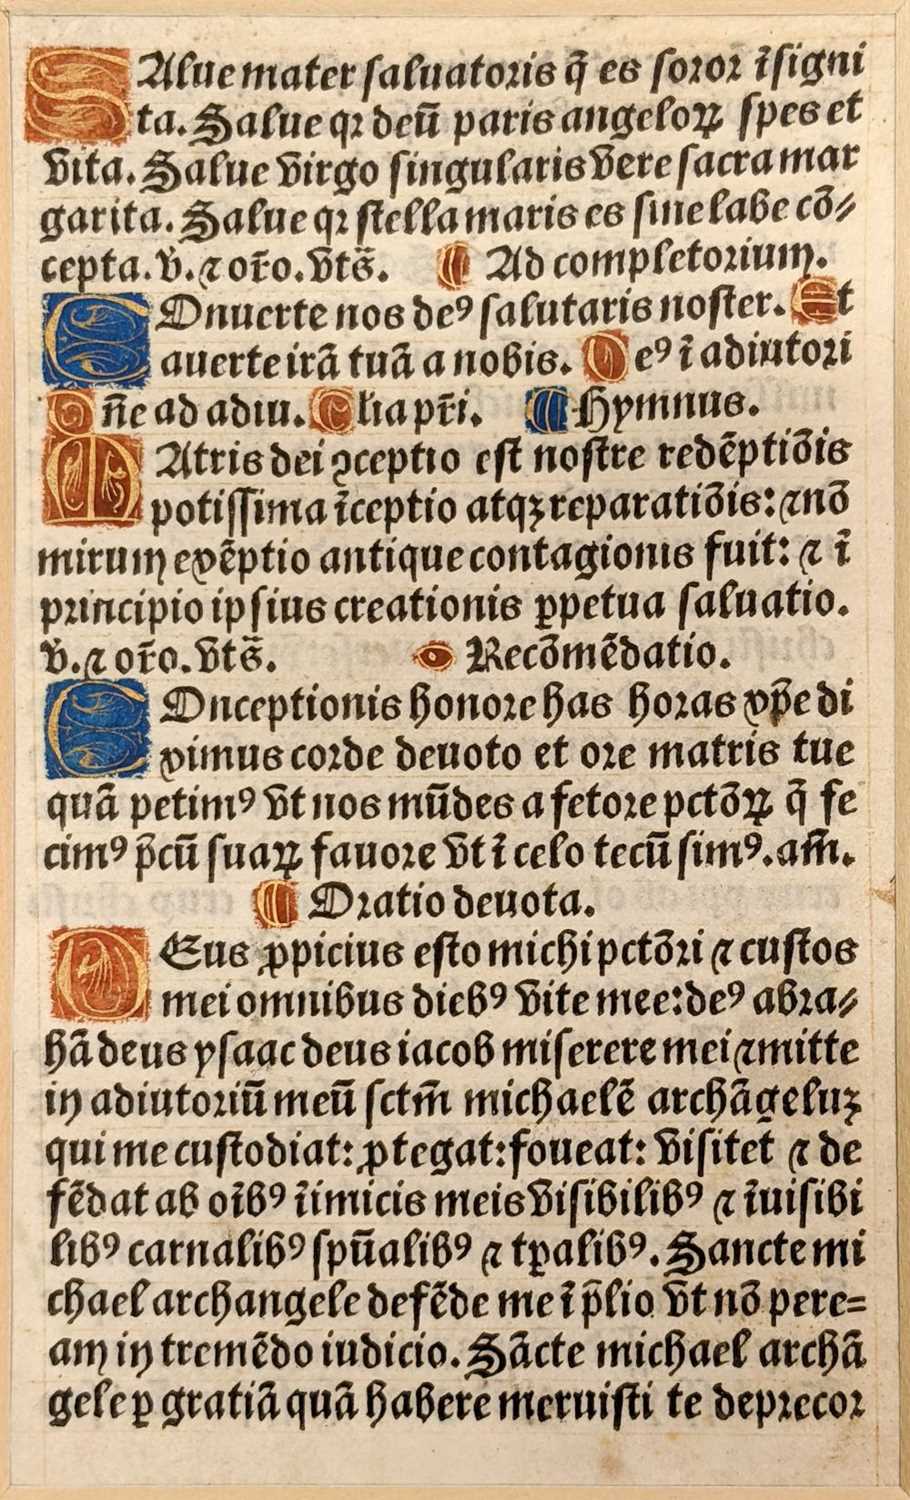 SAlue mater saluatoris q̃ es soror ĩsigni
ta. Salue qꝛ deũ paris angeloꝝ spes et
vita. Salue virgo singularis vere sacra mar
garita. Salue qꝛ stella maris es sine labe cõ⸗
cepta. v̉. ⁊ oŕo. vts̃. ¶ Ad completorium.
COnuerte nos deꝰ salutaris noster. Et
auerte irã tuã a nobis. Deꝰ ĩ adiutori
Dñe ad adiu. Glia pr̃i. ¶ Hymnus.
MAtris dei ꝯceptio est nostre redẽptiõis
potissima ĩceptio atqꝫ reparatiõis: ⁊ nõ
mirum exẽptio antique contagionis fuit: ⁊ ĩ
principio ipsius creationis ꝑpetua saluatio.
v̉. ⁊ oŕo. vts̃. Recõmẽdatio.
COnceptionis honore has horas xp̃e di
ximus corde deuoto et ore matris tue
quã petimꝰ vt nos mũdes a fetore pctõꝝ q̃ fe
cimꝰ p̃cũ suaꝝ fauore vt ĩ celo tecũ simꝰ. am̃.
¶ Oratio deuota.
DEus ꝓpicius esto michi pctõri ⁊ custos
mei omnibus diebꝰ vite mee: deꝰ abra⸗
hã deus ysaac deus iacob miserere mei ⁊ mitte
in adiutoriũ meũ sctm̃ michaelẽ archãgeluꝫ
qui me custodiat: ꝓtegat: foueat: visitet ⁊ de
fẽdat ab oĩbꝰ ĩimicis meis visibilibꝰ ⁊ ĩuisibi
libꝰ carnalibꝰ spũalibꝰ ⁊ tꝑalibꝰ. Sancte mi
chael archangele defẽde me ĩ p̃lio vt nõ pere=
am in tremẽdo iudicio. Sãcte michael archã
gele ꝑ gratiã quã habere meruisti te deprecor